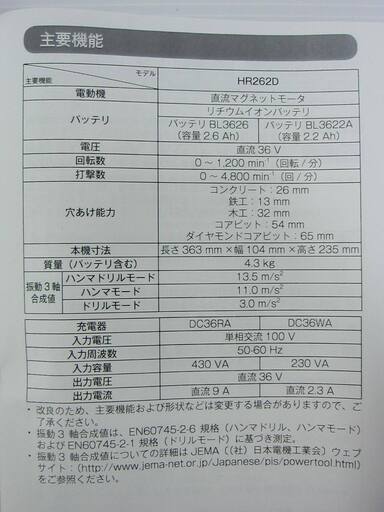 主要機能
モデル
主要機能
HR262D
電動機 直流マグネットモータ
リチウムイオンバッテリ
バッテリ バッテリ BL3626 バッテリ BL3622A
(容量 2.6 Ah) (容量 2.2 Ah)
電圧 直流 36 V
回転数 0～1,200 min⁻¹ (回転/分)
打撃数 0～4,800 min⁻¹ (回/分)
コンクリート:26 mm
鉄工:13 mm
穴あけ能力 木工:32 mm
コアビット:54 mm
ダイヤモンドコアビット:65 mm
本機寸法 長さ 363 mm×幅 104 mm×高さ 235 mm
質量(バッテリ含む) 4.3 kg
振動3軸合成値 ハンマドリルモード 13.5 m/s²
ハンマモード 11.0 m/s²
ドリルモード 3.0 m/s²
充電器 DC36RA DC36WA
入力電圧 単相交流 100 V
入力周波数 50-60 Hz
入力容量 430 VA 230 VA
出力電圧 直流 36 V
出力電流 直流 9 A 直流 2.3 A
・改良のため、主要機能および形状などは変更する場合がありますので、ご
了承ください。
・振動3軸合成値は、EN60745-2-6 規格(ハンマドリル、ハンマモード)
および EN60745-2-1 規格(ドリルモード)に基づき測定。
・振動3軸合成値についての詳細は JEMA((社)日本電機工業会)ウェブ
サイト:(http://www.jema-net.or.jp/Japanese/pis/powertool.html)
をご参照ください。